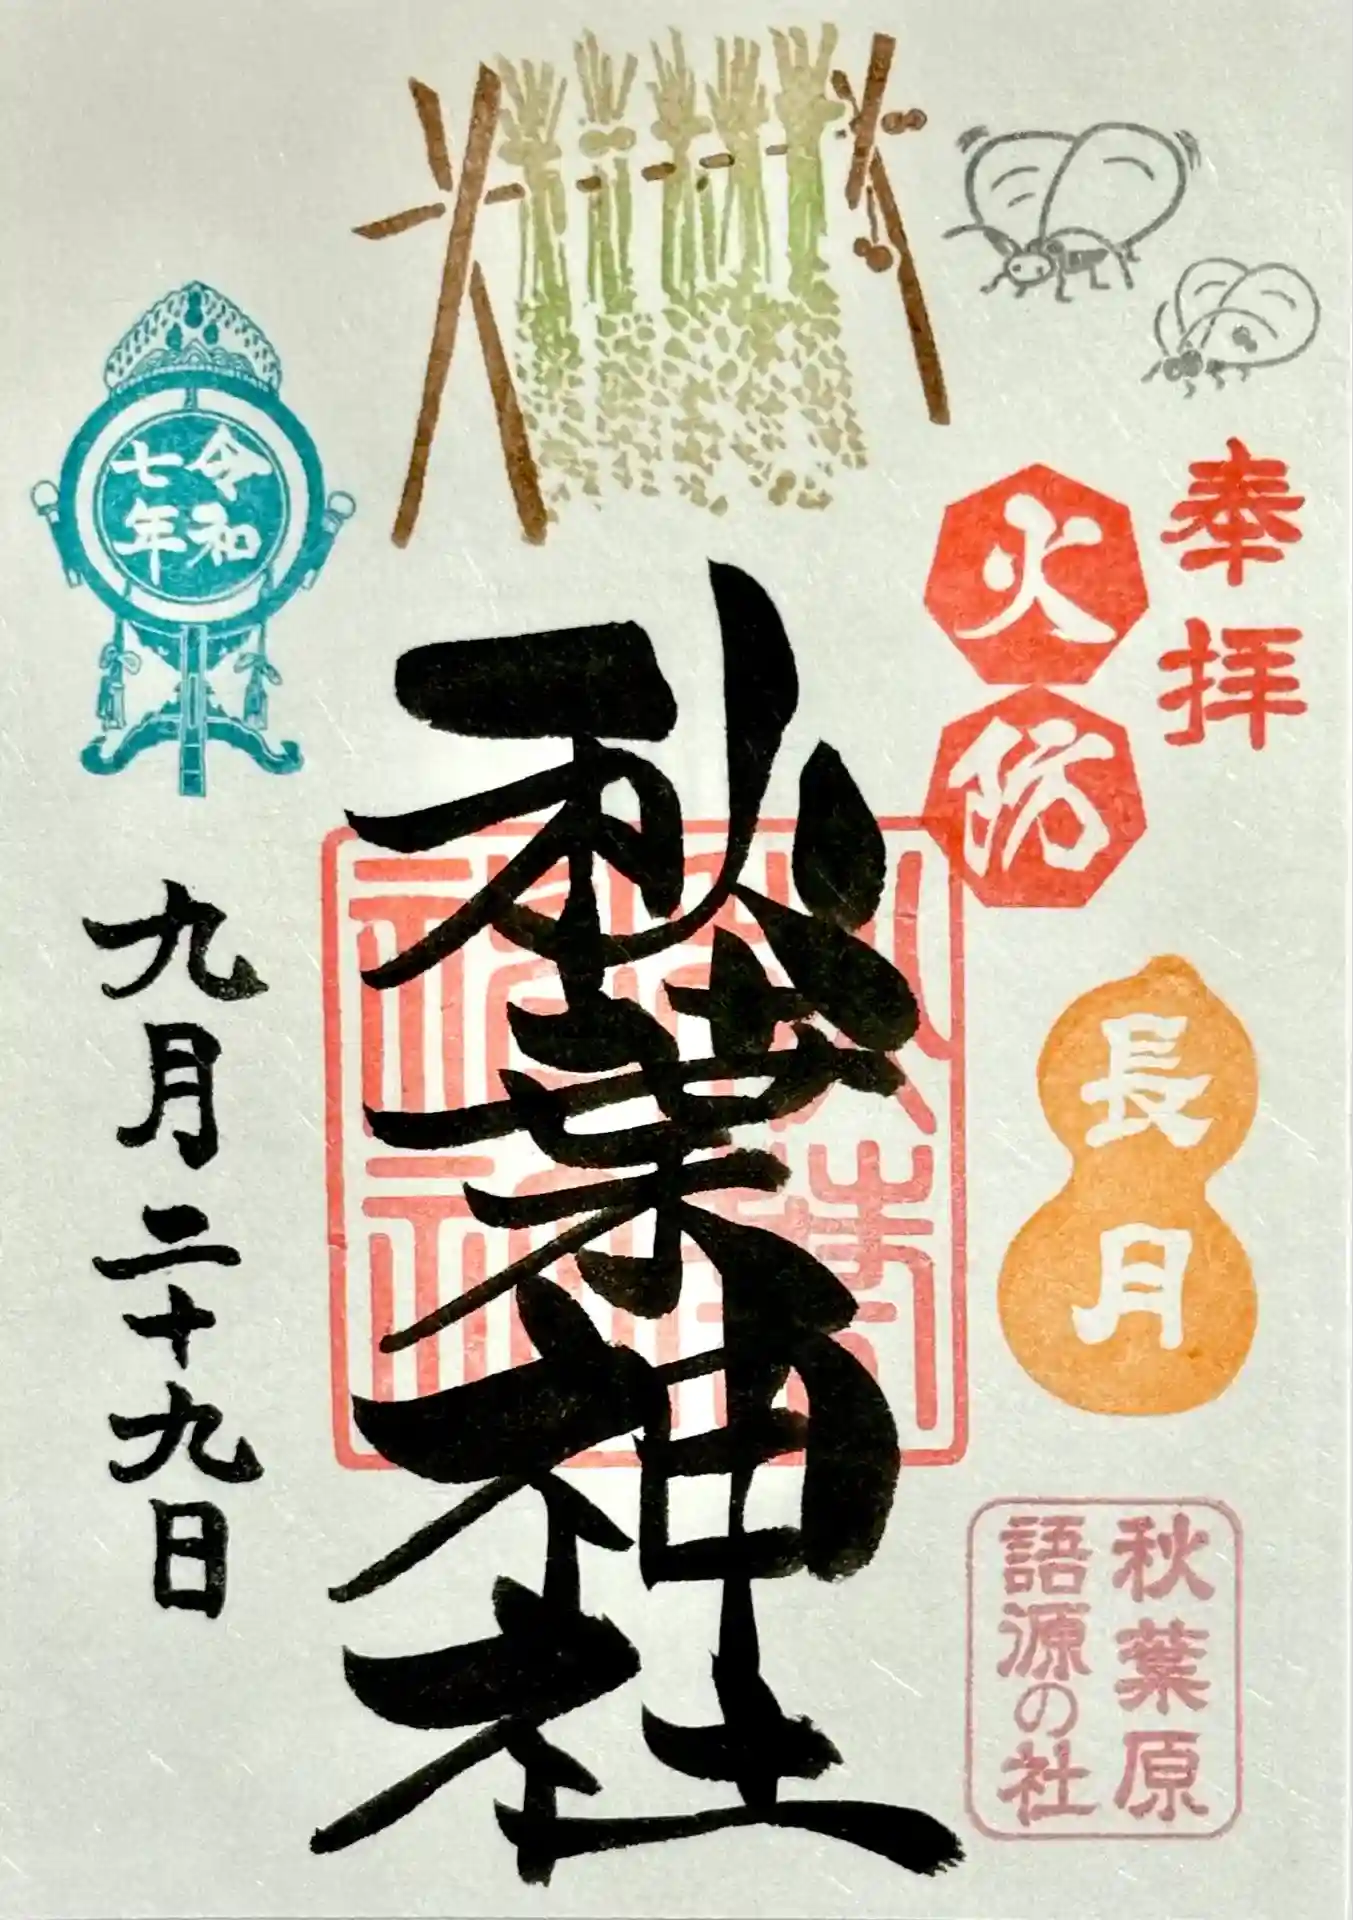 奉拝
火防
長月
秋葉原
語源の社
秋葉神社
秋葉
神社
令和
七年
九月二十九日